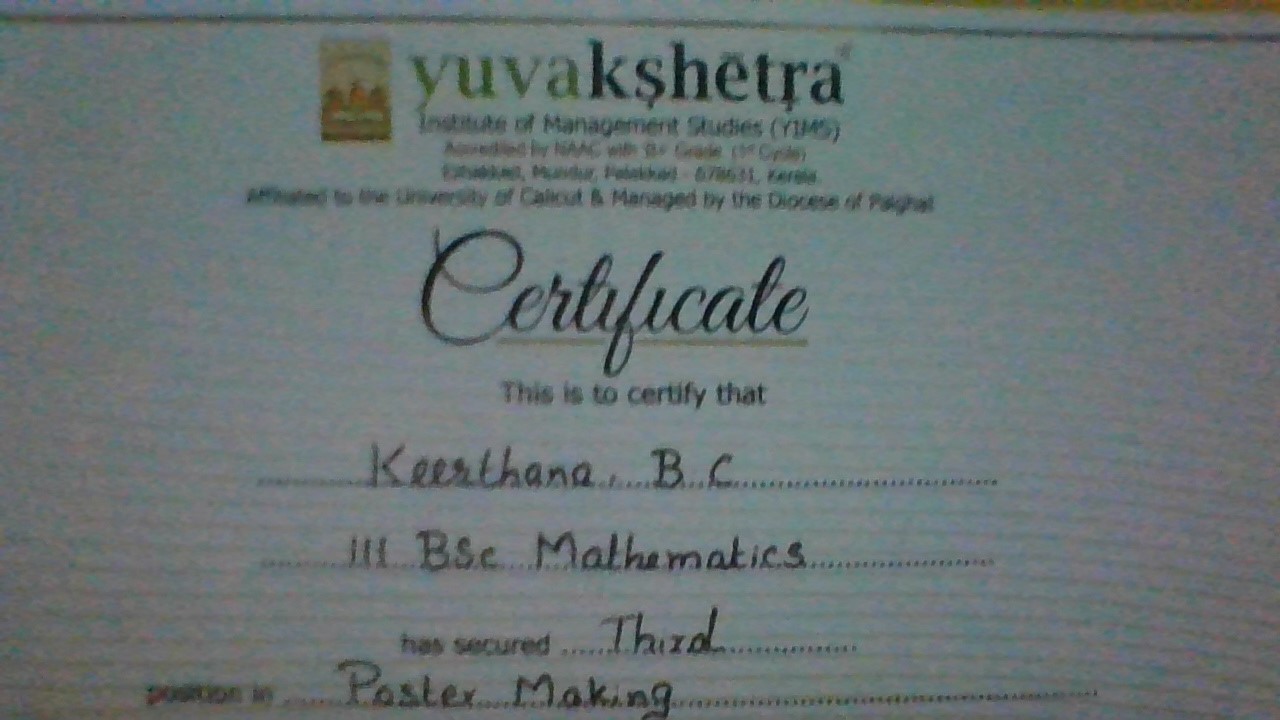 yuvakshetra
Institute of Management Studies (YIMS)
Accredited by NAAC with B+ Grade (1st Cycle)
Ezhakkad, Mundur, Palakkad - 678631, Kerala
Affiliated to the University of Calicut & Managed by the Diocese of Palghat
Certificate
This is to certify that
Keerthana. B.C
III BSc Mathematics
has secured Third
position in Poster Making